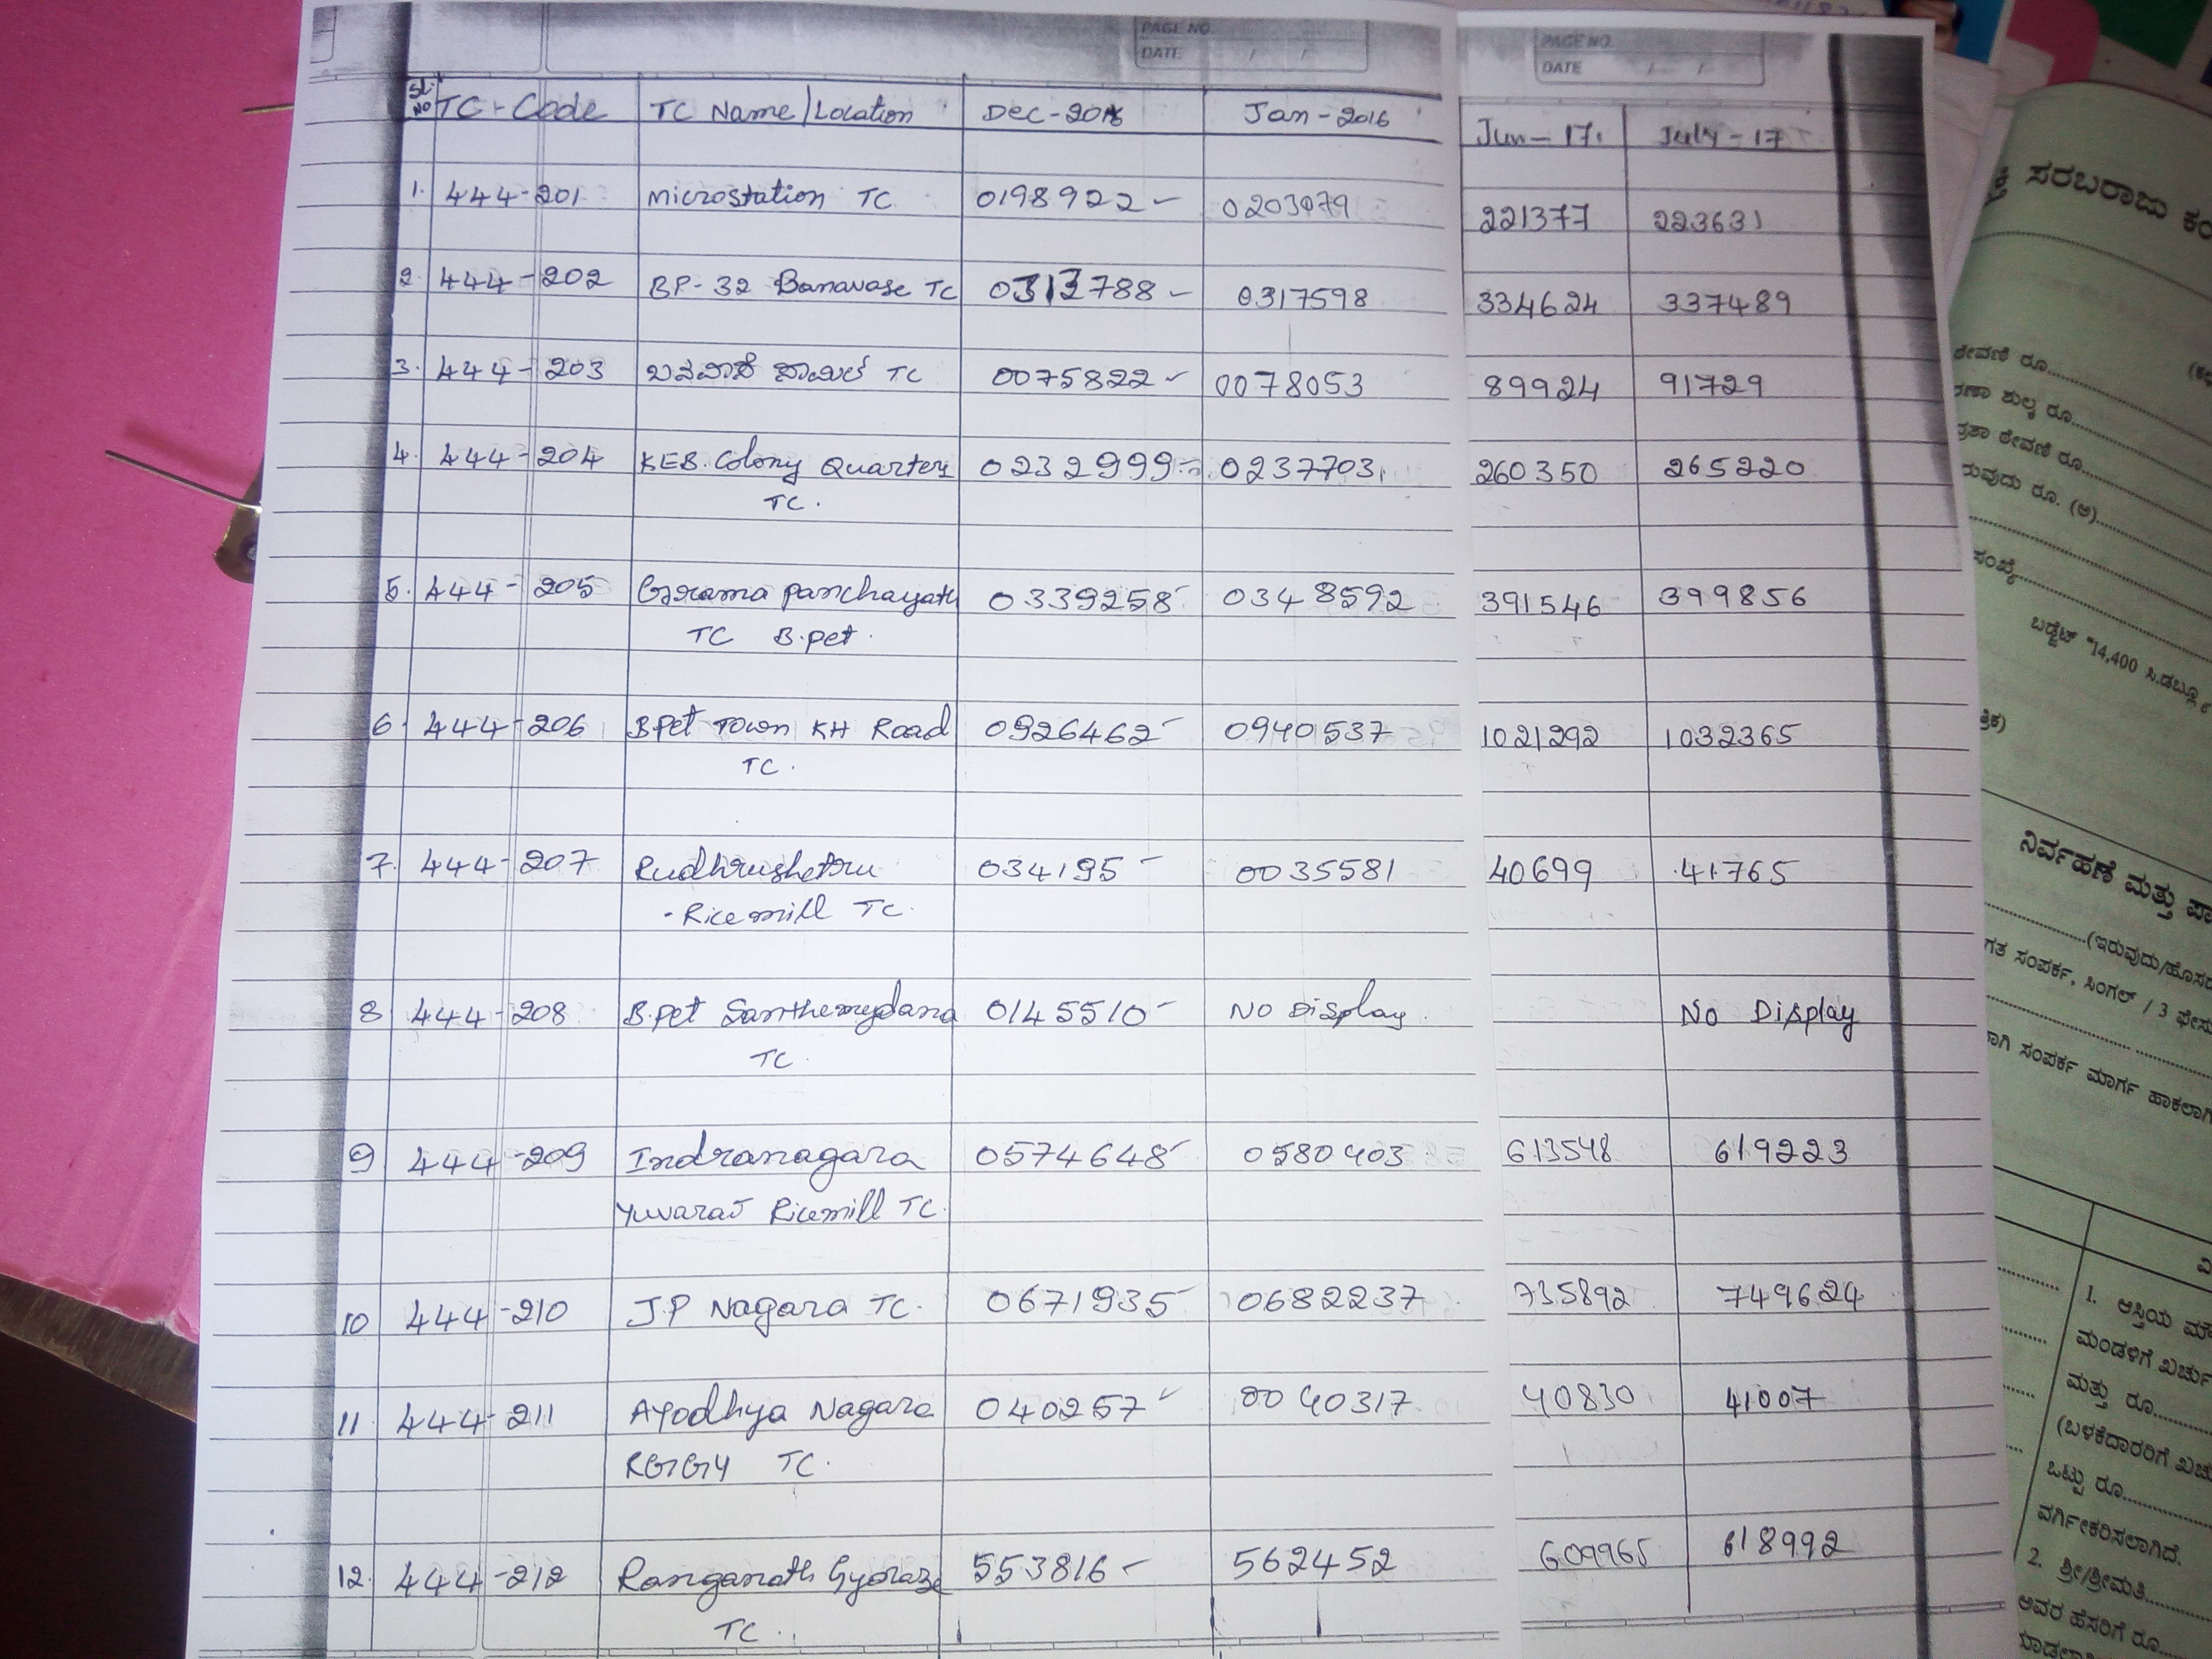 PAGE NO.
DATE / /
PAGE NO.
DATE / /
Sl. NO TC-Code TC Name/Location Dec-2016 Jan-2016 Jun-17. July-17
1. 444-201 Microstation TC 0198922- 0203079 221377 223631
2. 444-202 BP-32 Banavase TC 0313788- 0317598 334624 337489
3. 444-203 TC 0075822- 0078053 89924 91729
4. 444-204 KEB. Colony Quarters 0232999- 0237703 260350 265220
TC.
5. 444-205 Grama panchayath 0339258- 0348592 391546 399856
TC B.pet.
6. 444-206 B.pet Town KH Road 0926462- 0940537 1021292 1032365
TC.
7. 444-207 034195- 0035581 40699 41765
-Ricemill TC.
8 444-208 B.pet Santhemydana 0145510- No Display. No Display
TC.
9 444-209 Indranagara 0574648- 0580403 613548 619223
Yuvaraj Ricemill TC.
10 444-210 J.P Nagara TC. 0671935- 0682237 735892 749624
11 444-211 Ayodhya Nagara 040257- 0040317 40830 41007
RGGY TC.
12. 444-212 Ranganath 553816- 562452 609965 618992
TC.
ಸರಬರಾಜು
ಠೇವಣಿ ರೂ
ಶುಲ್ಕ ರೂ
ಠೇವಣಿ ರೂ
ರೂ. (ಅ)
ಸಂಖ್ಯೆ
ಬಡ್ಜೆಟ್ "14,400
ನಿರ್ವಹಣೆ ಮತ್ತು
(ಇರುವುದು/
ಸಂಪರ್ಕ, ಸಿಂಗಲ್ / 3
ಸಂಪರ್ಕ ಮಾರ್ಗ
1. ಆಸ್ತಿಯ
ಮಂಡಳಿಗೆ
ಮತ್ತು ರೂ
(ಬಳಕೆದಾರರಿಗೆ
ಒಟ್ಟು ರೂ
ವರ್ಗೀಕರಿಸಲಾಗಿದೆ.
2. ಶ್ರೀ/ಶ್ರೀಮತಿ
ಅವರ ಹೆಸರಿಗೆ ರೂ